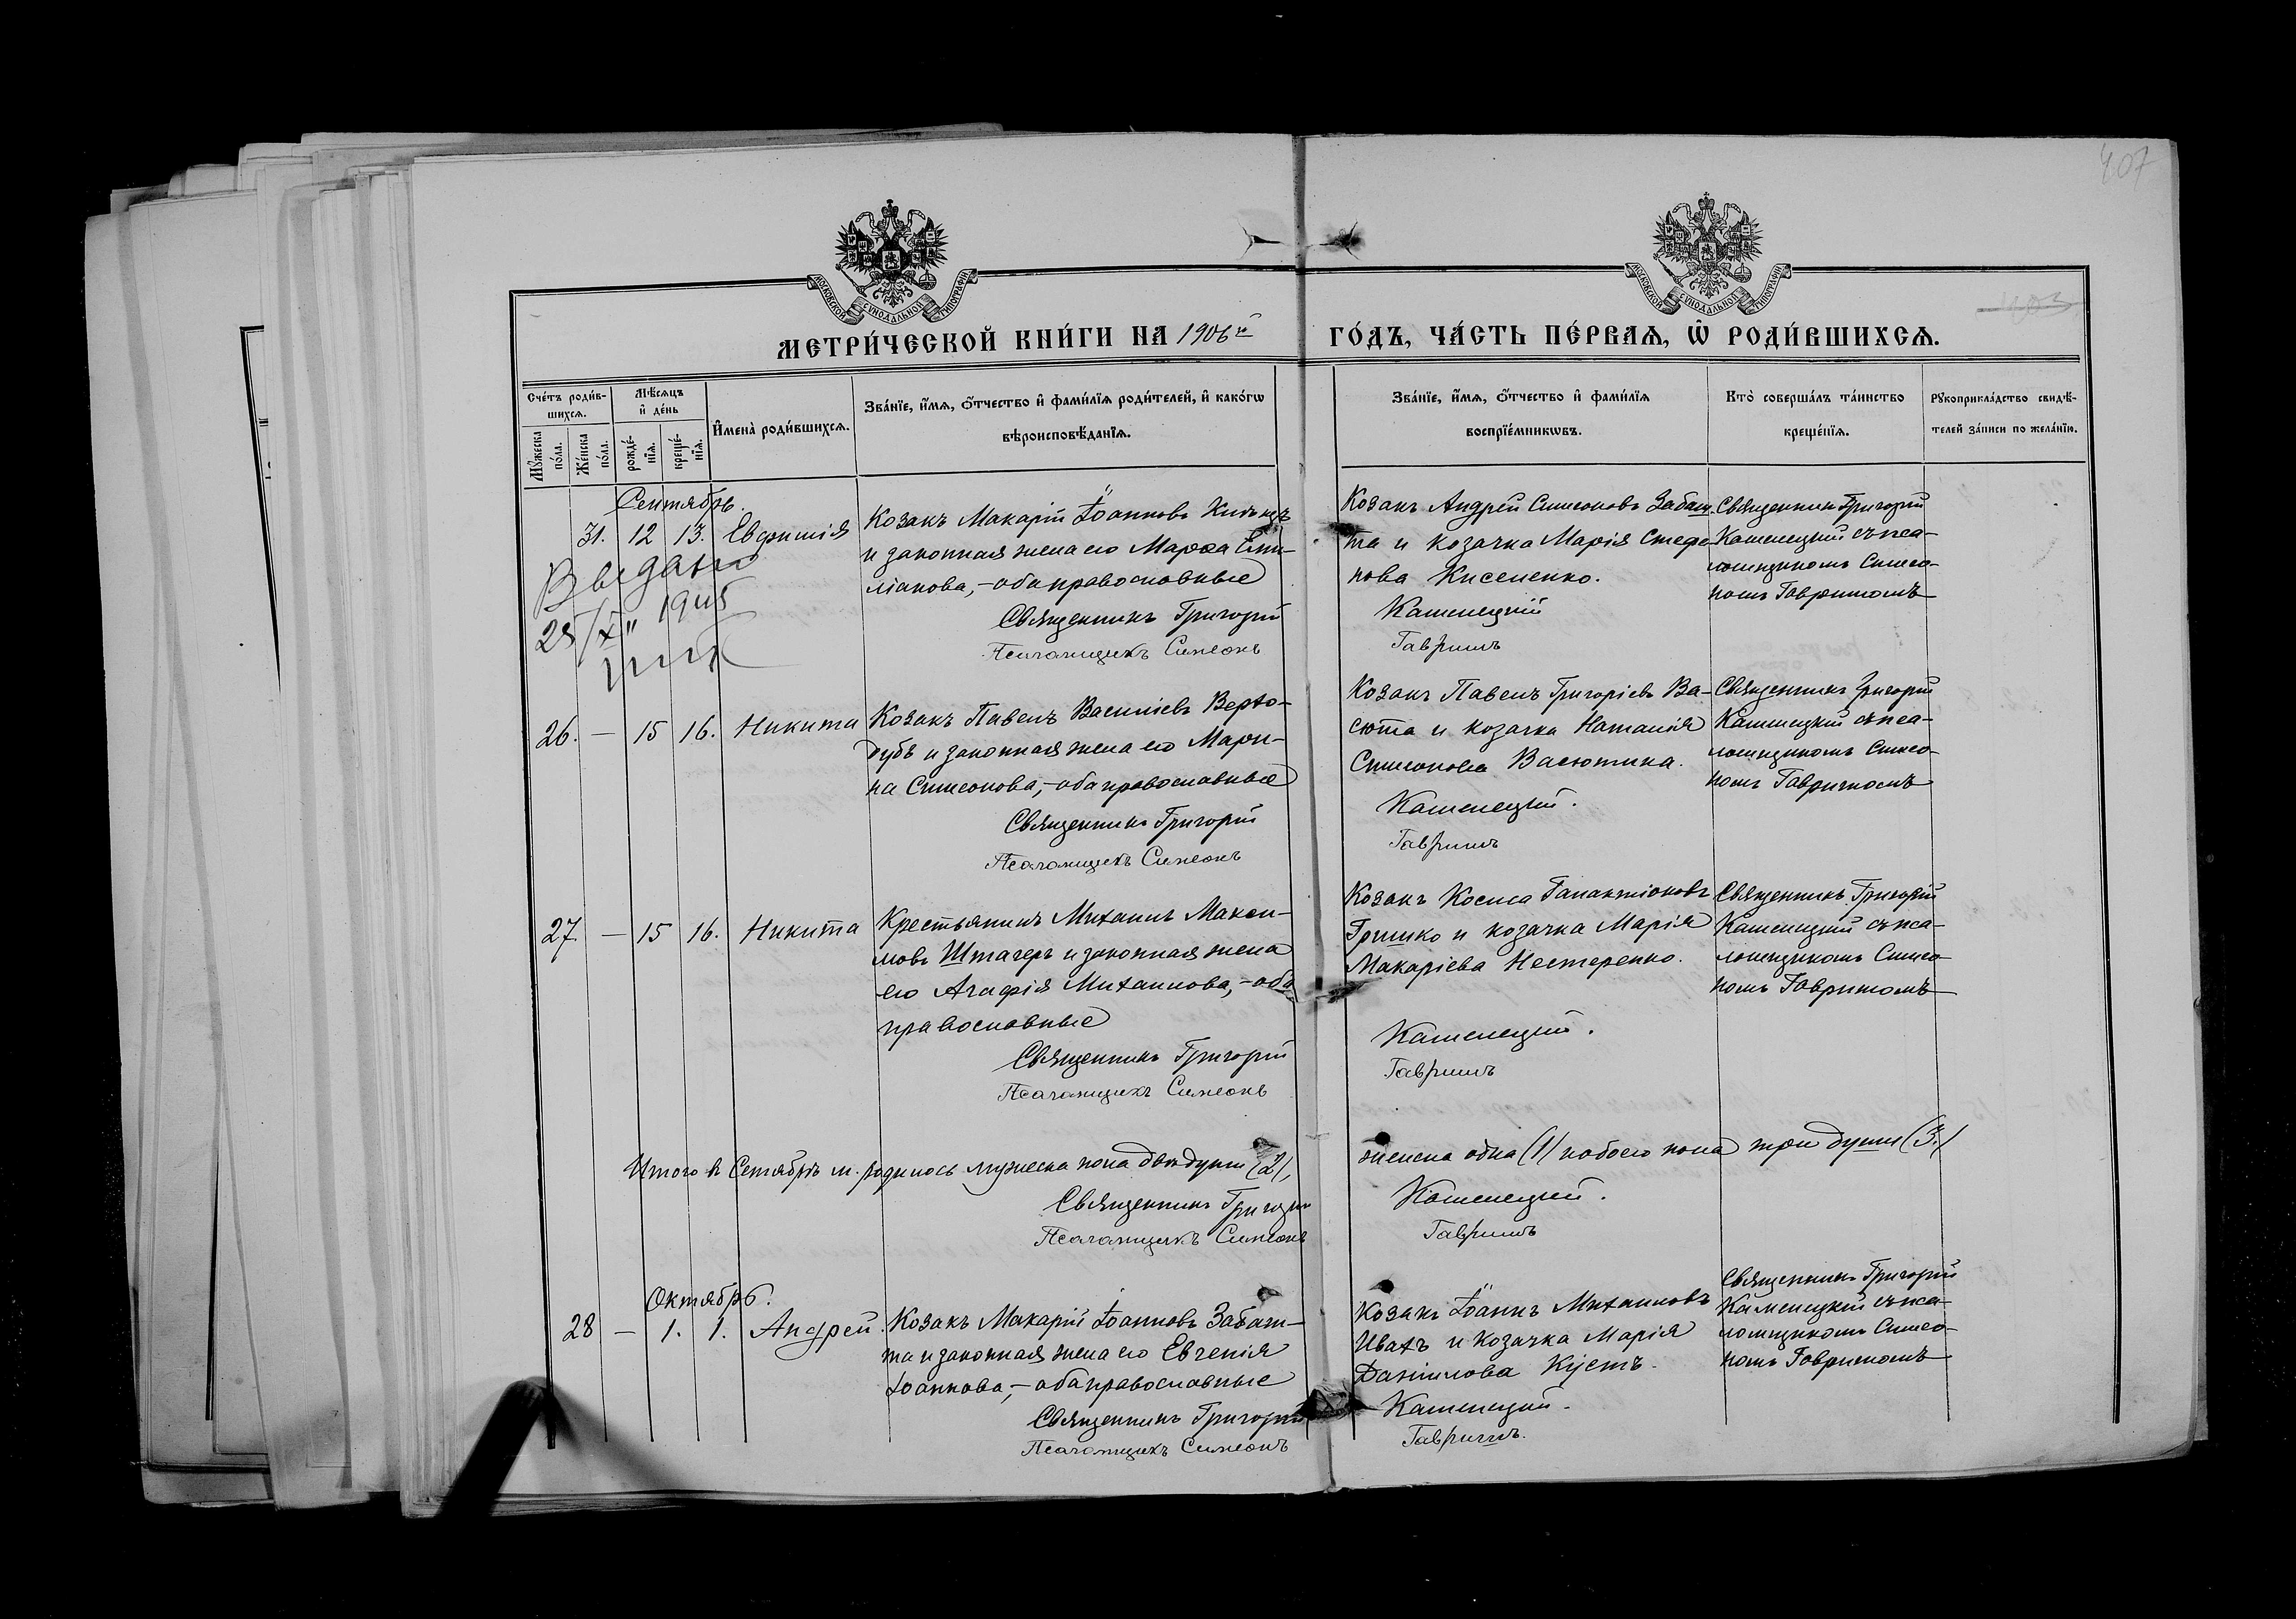 407
МОСКОВСКОЙ СѴНОДАЛЬНОЙ ТИПОГРАФІИ
МОСКОВСКОЙ СѴНОДАЛЬНОЙ ТИПОГРАФІИ
403
МЕТРИ́ЧЕСКОЙ КНИ́ГИ НА 1906й ГО́ДЪ, ЧА́СТЬ ПЕ́РВАѦ, Ѽ РОДИ́ВШИХСѦ.
Сче́тъ роди́в-
шихсѧ.
Мꙋ́жеска по́ла.
Же́нска по́ла.
Мѣ́сѧцъ
и҆ де́нь
рожде́-
нїѧ.
креще́-
нїѧ.
И҆мена̀ роди́вшихсѧ.
Зва́нїе, и҆́мѧ, ѻ҆́тчество и҆ фами́лїѧ роди́телей, и҆ како́гѡ
вѣроисповѣ́данїѧ.
Зва́нїе, и҆́мѧ, ѻ҆́тчество и҆ фами́лїѧ
воспрїе́мникѡвъ.
Кто̀ соверша́лъ та́инство
креще́нїѧ.
Рꙋкоприкла́дство свидѣ́-
телей за́писи по жела́нїю.
Сентябрь.
31. 12 13. Евфимія
Козакъ Макарій Іоанновъ
и законная жена его Марѳа Еми-
ліанова, – оба православные
Священникъ Григорій
Псаломщикъ Симеонъ
Козакъ Андрей Симеоновъ Забаш-
та и козачка Марія Стефа-
нова Киселенко.
Каменецкій
Гавришъ
Священникъ Григорій
Каменецкій съ пса-
ломщикомъ Симео-
номъ Гавришомъ
Выдано
25/X" 1945
26. — 15 16. Никита
Козакъ Павелъ Василіевъ Верто-
дубъ и законная жена его Мари-
на Симеонова, – оба православные
Священникъ Григорій
Псаломщикъ Симеонъ
Козакъ Павелъ Григоріевъ Ва-
сюта и козачка Наталія
Симеонова Васютина.
Каменецкій.
Гавришъ
Священникъ Григорій
Каменецкій съ пса-
ломщикомъ Симео-
номъ Гавришомъ
27. — 15 16. Никита
Крестьянинъ Михаилъ Макси-
мовъ Штагеръ и законная жена
его Агафія Михаилова, – оба
православные
Священникъ Григорій
Псаломщикъ Симеонъ
Козакъ Косма Галактіоновъ
Гришко и козачка Марія
Макаріева Нестеренко.
Каменецкій.
Гавришъ
Священникъ Григорій
Каменецкій съ пса-
ломщикомъ Симео-
номъ Гавришомъ
Итого въ Сентябрѣ м. родилось мужеска пола двѣ души (2), женска одна (1) и обоего пола три души (3.)
Священникъ Григорій Каменецкій.
Псаломщикъ Симеонъ Гавришъ
Октябрь.
28 — 1. 1. Андрей.
Козакъ Макарій Іоанновъ Забаш-
та и законная жена его Евгенія
Іоаннова, – оба православные
Священникъ Григорій
Псаломщикъ Симеонъ
Козакъ Іоаннъ Михаиловъ
Ивахъ и козачка Марія
Даніилова Кустъ.
Каменецкій.
Гавришъ.
Священникъ Григорій
Каменецкій съ пса-
ломщикомъ Симео-
номъ Гавришомъ